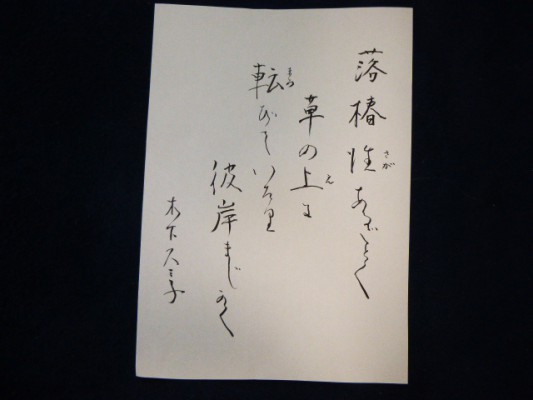 落椿性さがあざとく
草の上えに
転まろびていたり
彼岸まぢかく
木下久子